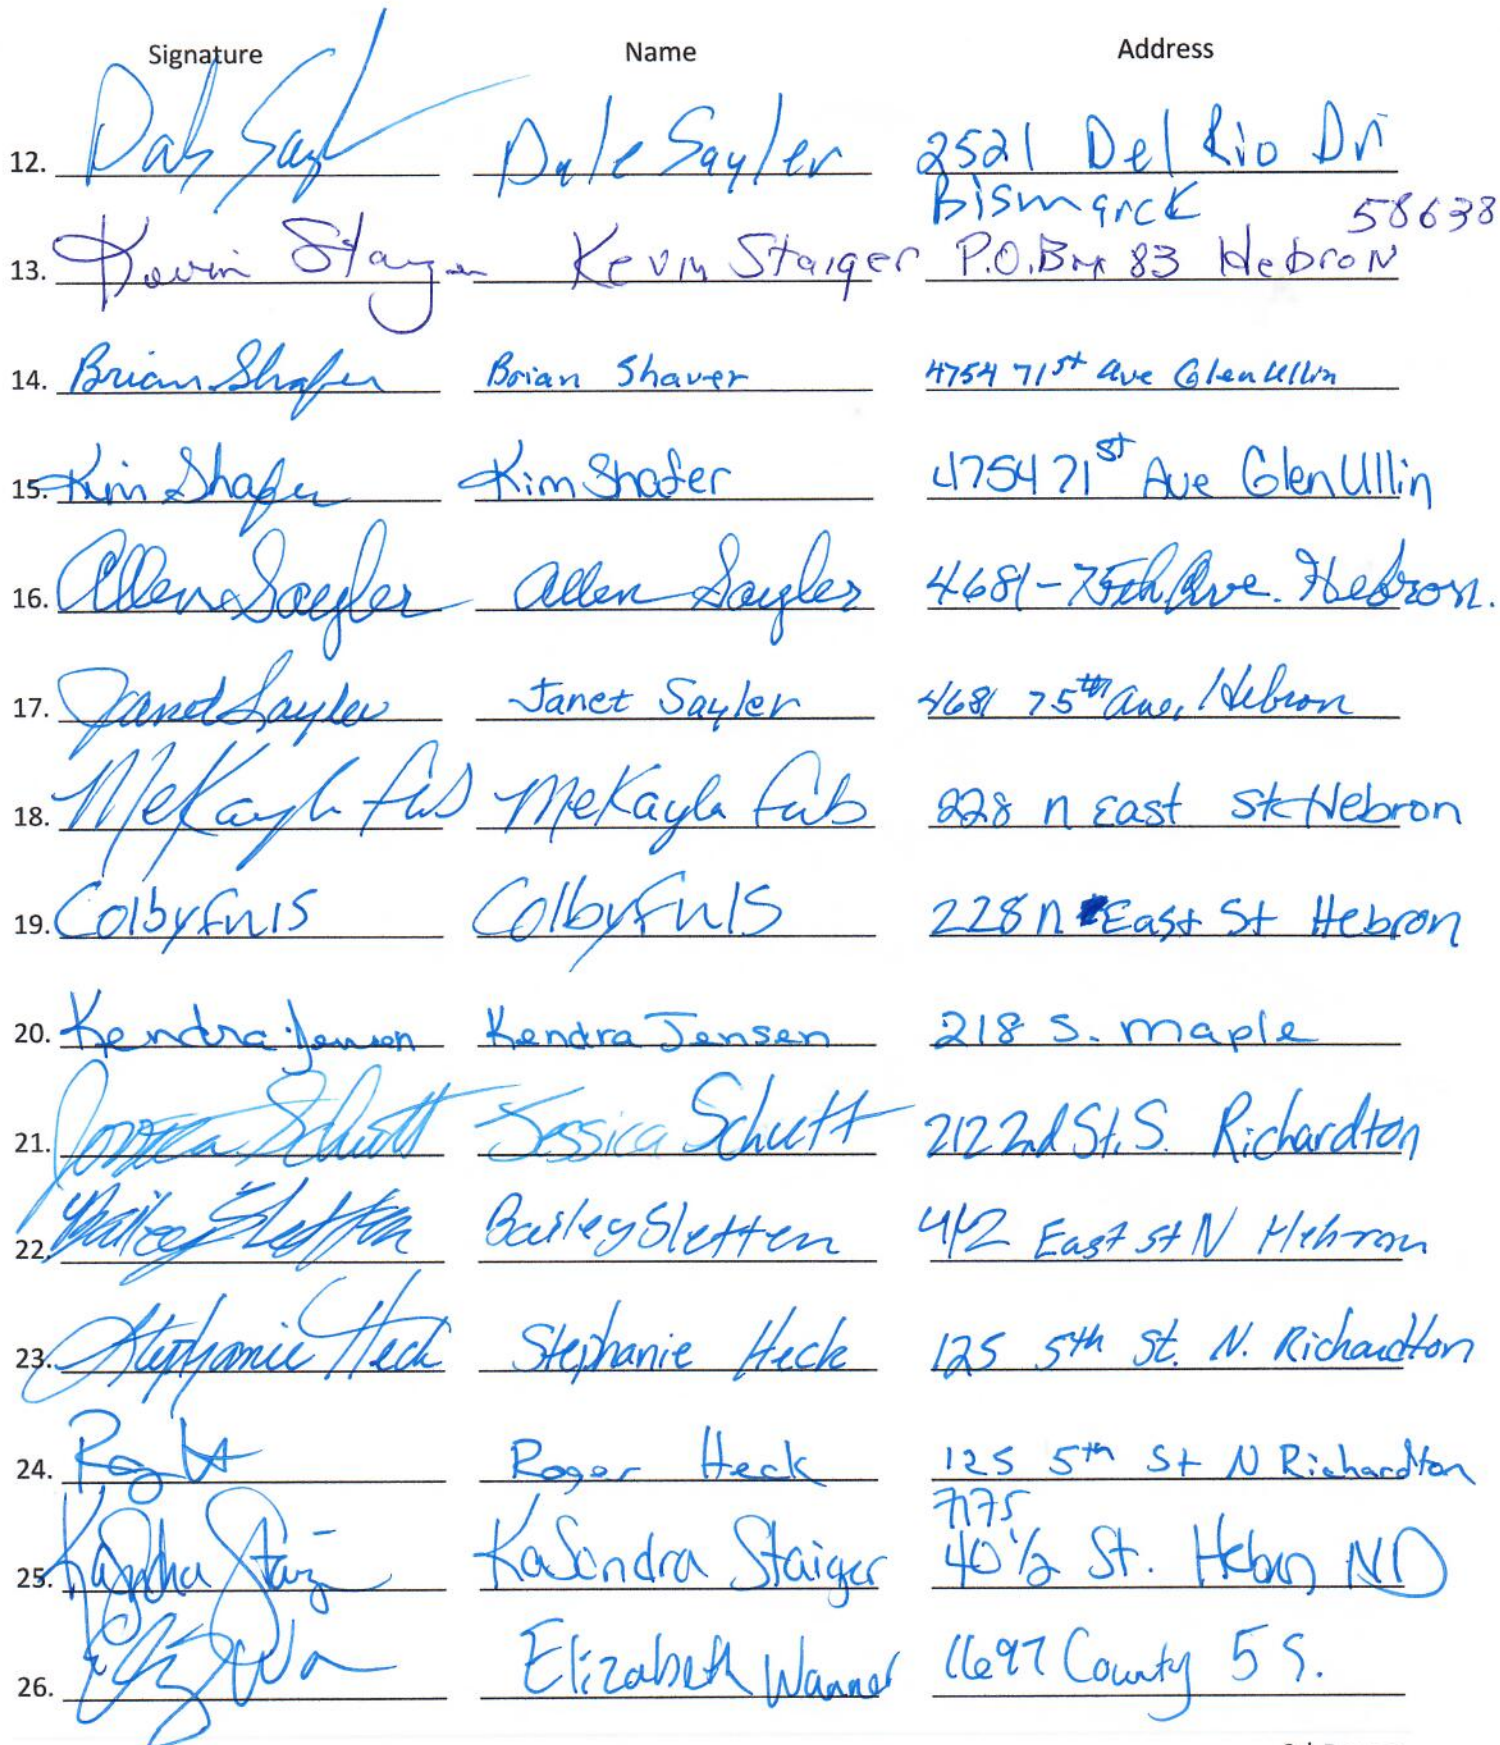 Signature Name Address
12. Dale Sayler Dale Sayler 2521 Del Rio Dr
Bismarck 58638
13. Kevin Staiger Kevin Staiger P.O. Box 83 Hebron
14. Brian Shafer Brian Shaver 4754 71st Ave Glen Ullin
15. Kim Shafer Kim Shafer 4754 71st Ave Glen Ullin
16. Allen Sayler Allen Sayler 4681-75th Ave. Hebron.
17. Janet Sayler Janet Sayler 4681 75th Ave, Hebron
18. MeKayla MeKayla 228 n East St Hebron
19. Colby Colby 228 n East St Hebron
20. Kendra Jensen Kendra Jensen 218 S. maple
21. Jessica Schutt Jessica Schutt 212 2nd St. S. Richardton
22. Bailey Sletten Bailey Sletten 412 East St N Hebron
23. Stephanie Heck Stephanie Heck 125 5th St. N. Richardton
24. Roger Heck 125 5th St N Richardton
7175
25. Staiger 40 1/2 St. Hebron ND
26. Elizabeth Wanner County 5 S.